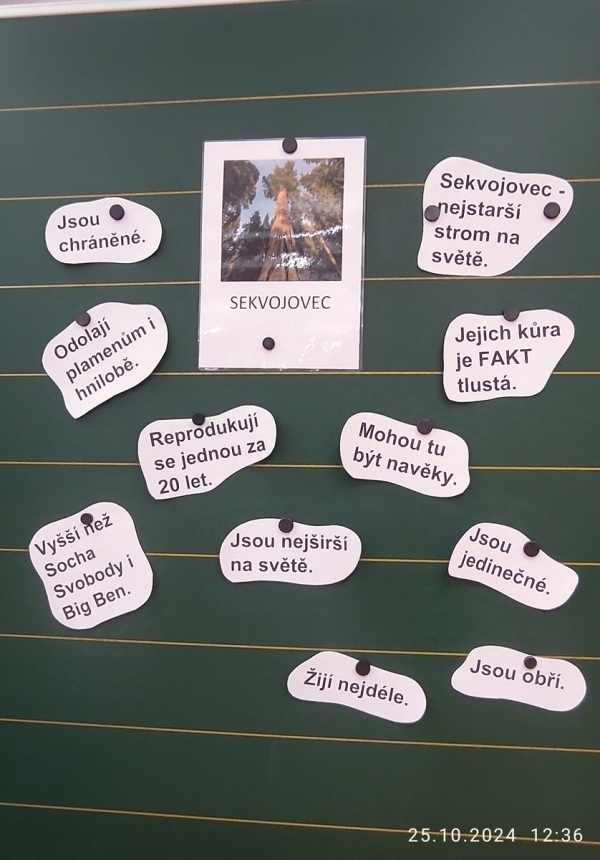 Jsou
chráněné.
SEKVOJOVEC
Sekvojovec -
nejstarší
strom na
světě.
Odolají
plamenům i
hnilobě.
Jejich kůra
je FAKT
tlustá.
Reprodukují
se jednou za
20 let.
Mohou tu
být navěky.
Vyšší než
Socha
Svobody i
Big Ben.
Jsou nejširší
na světě.
Jsou
jedinečné.
Žijí nejdéle.
Jsou obří.
25.10.2024 12:36